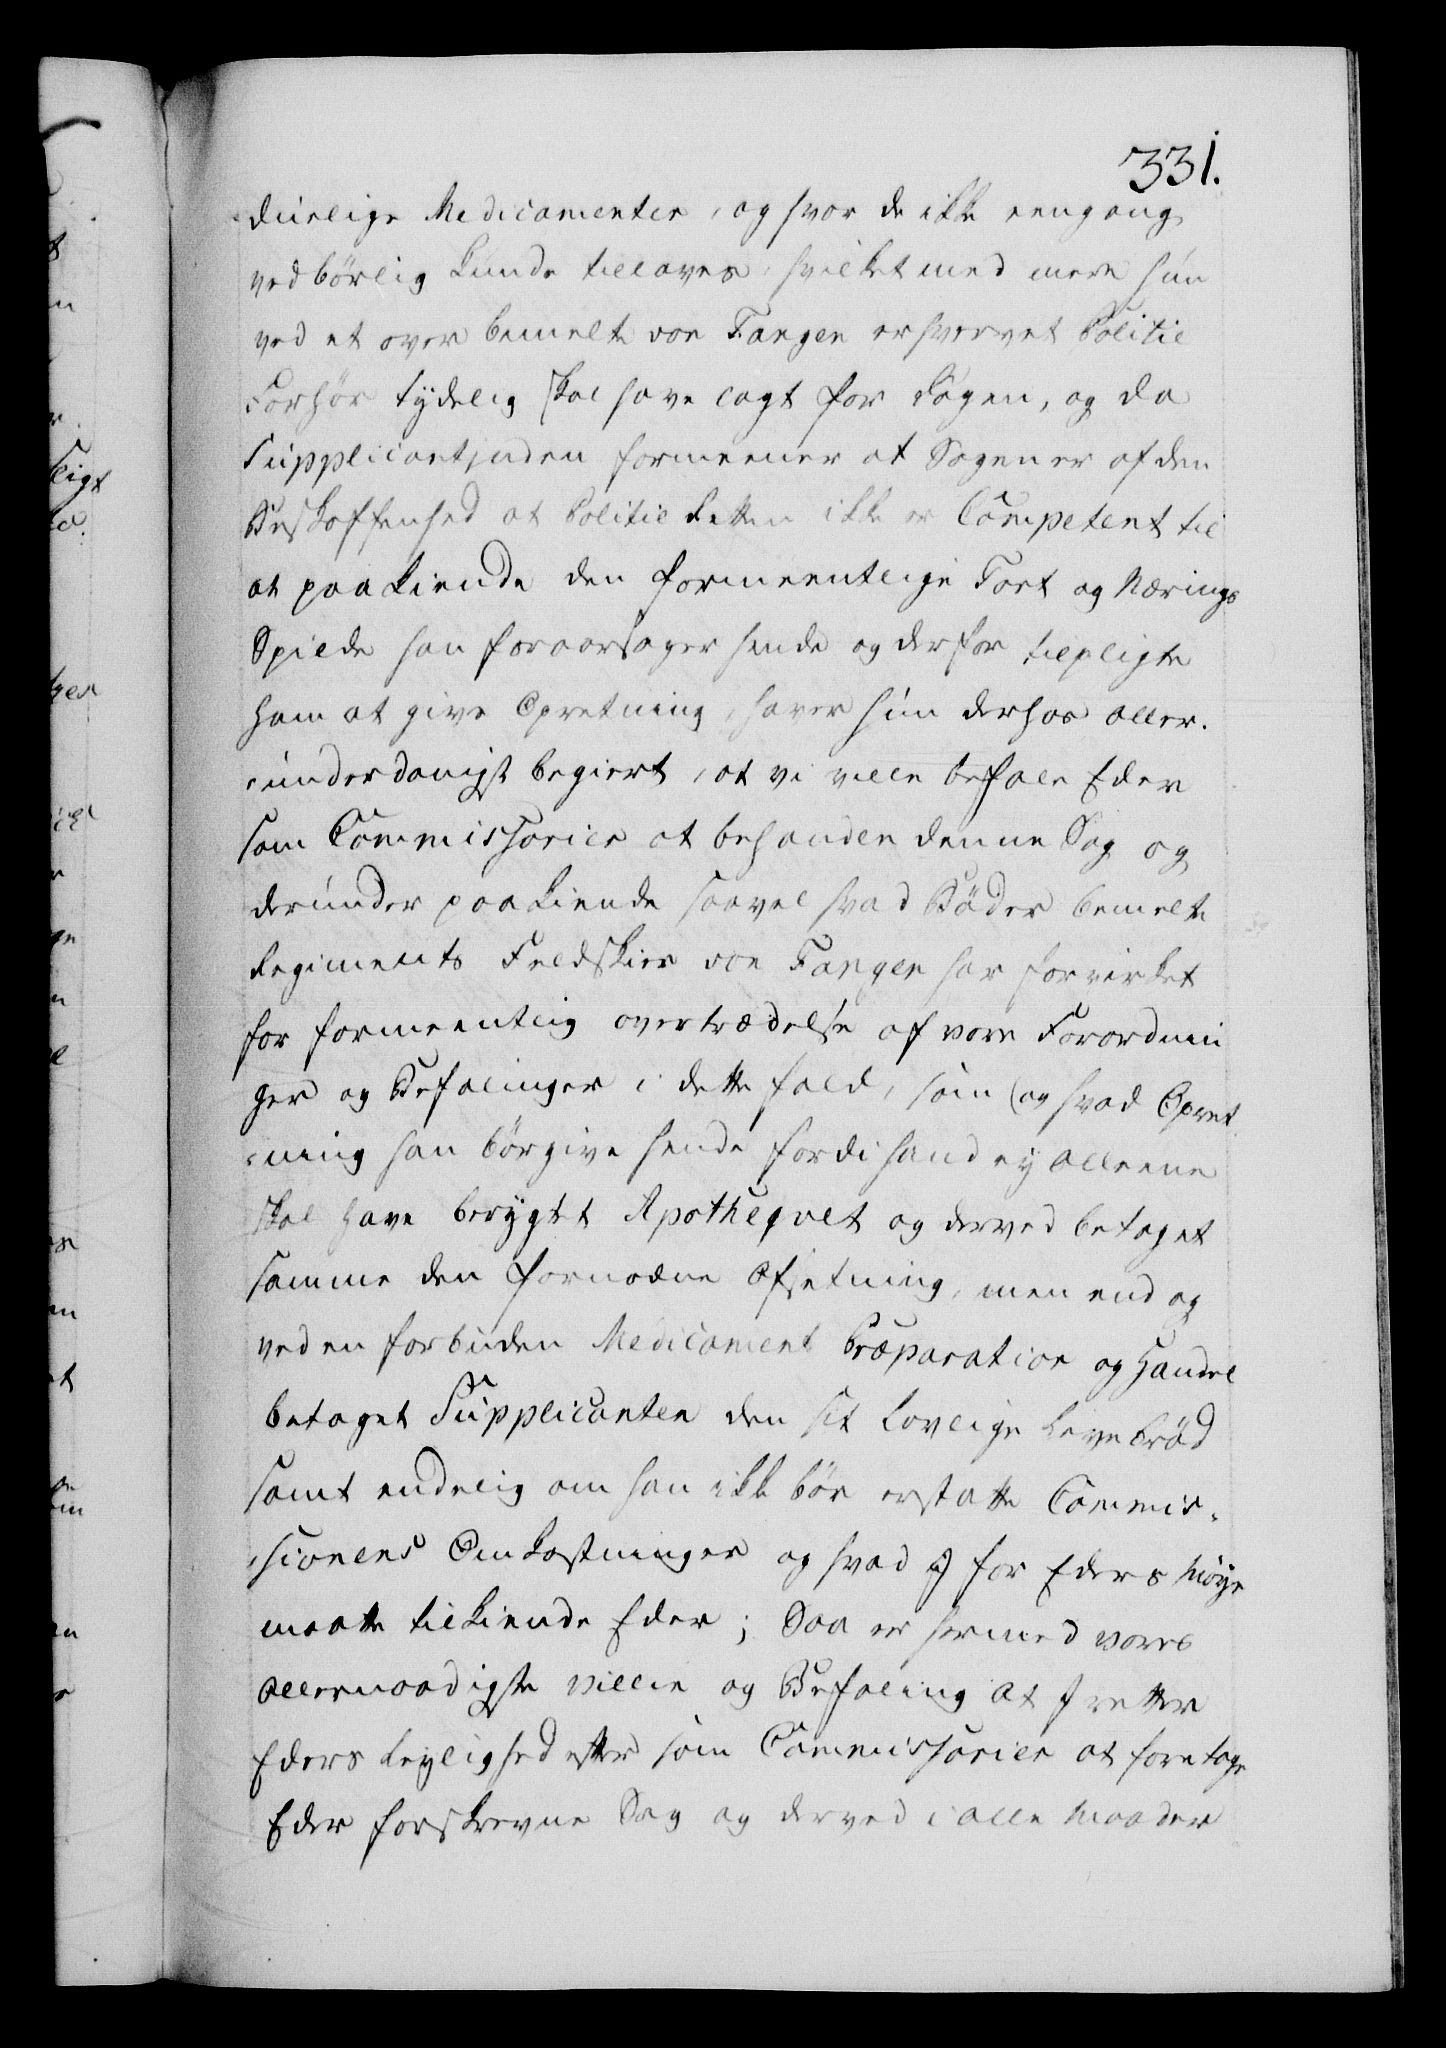 331.
duelige Medicamenter, og hvor de ikke eengang
vedbörlig kunde tillaves, hvilket med mere hun
ved et over bemelte von Fangen erhvervet Politie
Forhör tydelig skal have lagt for Dagen, og da
Supplicantinden formeener at Sagen er af den
Beskaffenhed at Politie Retten ikke er Competent til
at paakiende den formeentlige Tort og Nærings
Spilde han foraarsager hende og derfor tilpligte
ham at give Opretning, haver hun derhos aller-
underdanigst begiert, at vi ville befale Eder
som Commissarier at behandle denne Sag og
derunder paakiende saavel hvad Böder bemelte
Regiments Feldskier von Fangen har forvirket
for formeentlig overtrædelse af vore Forordnin
ger og Befalinger i dette fald, som og hvad Opret
ning han bör give hende fordi hand ey alleene
skal have berygtet Apotheqvet og derved betaget
samme den fornødne Afsetning, men end og
ved en forbuden Medicament Præparation og Handel
betaget Supplicanten den sit lovlige Levebröd
samt endelig om han ikke bör erstatte Commis-
sionens Omkostninger og hvad I for Eders Möye
maatte tilkiende Eder; Saa er hermed vores
allernaadigste Villie og Befaling at I retter
Eders Leylighed efter som Commissarier at foretage
Eder forskrevne Sag og derved i alle Maader